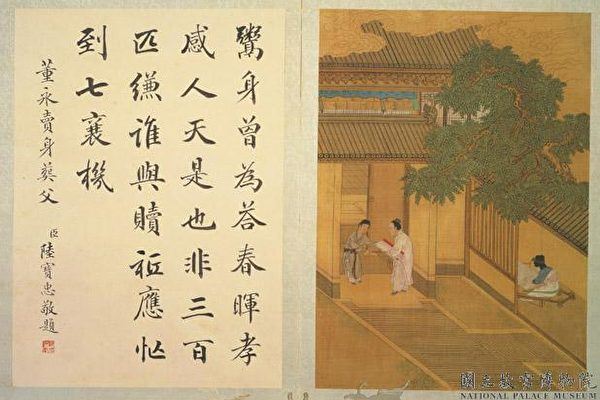 鬻身曾為荅春暉孝
感人天是也非三百
匹縑誰與贖祗應忙
到七襄機
董永賣身葬父 臣 陸寶忠敬題
國立故宮博物院
NATIONAL PALACE MUSEUM